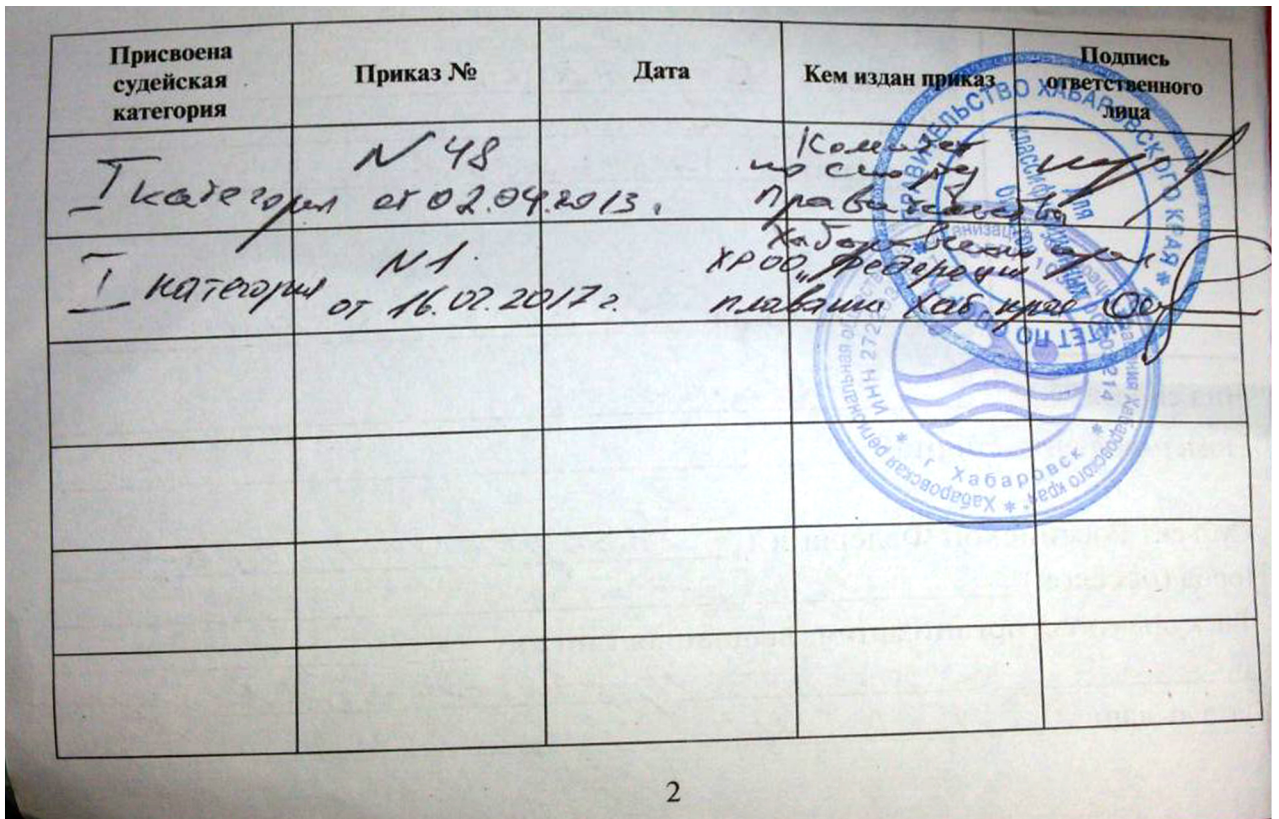 Присвоена судейская категория
Приказ №
Дата
Кем издан приказ
Подпись ответственного лица
I категория
N 48
от 02.04.2013.
Комитет
по спорту
Правительства
Хабаровского края
I категория
N1
от 16.02.2017г.
ХРОО "Федерация
плавания Хаб. края
ПРАВИТЕЛЬСТВО ХАБАРОВСКОГО КРАЯ *
Для
классификационных
Хабаровская региональная
Хабаровского края" *
ИНН 272
* г. Хабаровск *
2